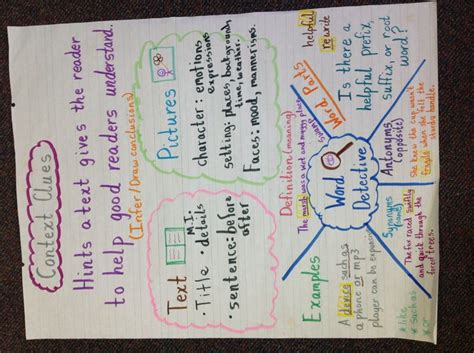 Context Clues
Hints a text gives the reader
to help good readers understand.
(Infer/Draw conclusions)
Text
M.I.
• Title • details
• sentence: before
after
Pictures
character: emotions
expressions
setting: places, background,
time, weather.
Faces: mood, mannerisms.
Word
Detective
Definition (meaning)
The marsh was a wet and muggy place.
Word Parts
helpful
rewrite
Is there a
helpful prefix,
suffix, or root
word?
Antonyms
(opposite)
She knew the cup wasn't
fragile when she felt the
sturdy handle.
Synonyms
(same)
The fox raced swiftly
and quick through the
forest trees.
Examples
A device such as
a phone or mp3
player can be expensive
* like
* such as
* or